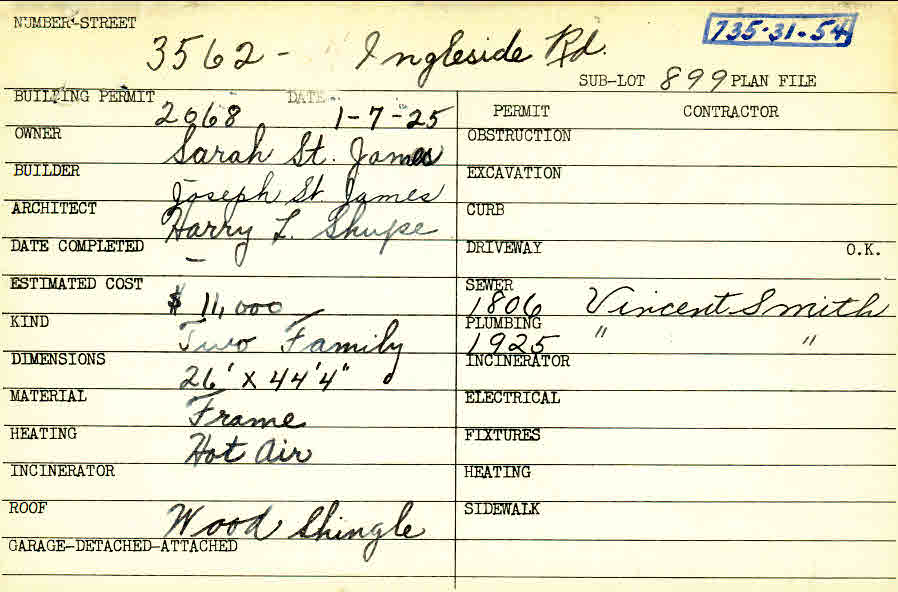 NUMBER-STREET
735-31-54
3562 - Ingleside Rd.
SUB-LOT 899 PLAN FILE
BUILDING PERMIT 2068 DATE 1-7-25
OWNER Sarah St. James
BUILDER Joseph St. James
ARCHITECT Harry L. Shupe
DATE COMPLETED —
ESTIMATED COST $ 11,000
KIND Two Family
DIMENSIONS 26' x 44'4"
MATERIAL Frame
HEATING Hot Air
INCINERATOR
ROOF Wood Shingle
GARAGE-DETACHED-ATTACHED
PERMIT CONTRACTOR
OBSTRUCTION
EXCAVATION
CURB
DRIVEWAY O.K.
SEWER 1806 Vincent Smith
PLUMBING 1925 " "
INCINERATOR
ELECTRICAL
FIXTURES
HEATING
SIDEWALK